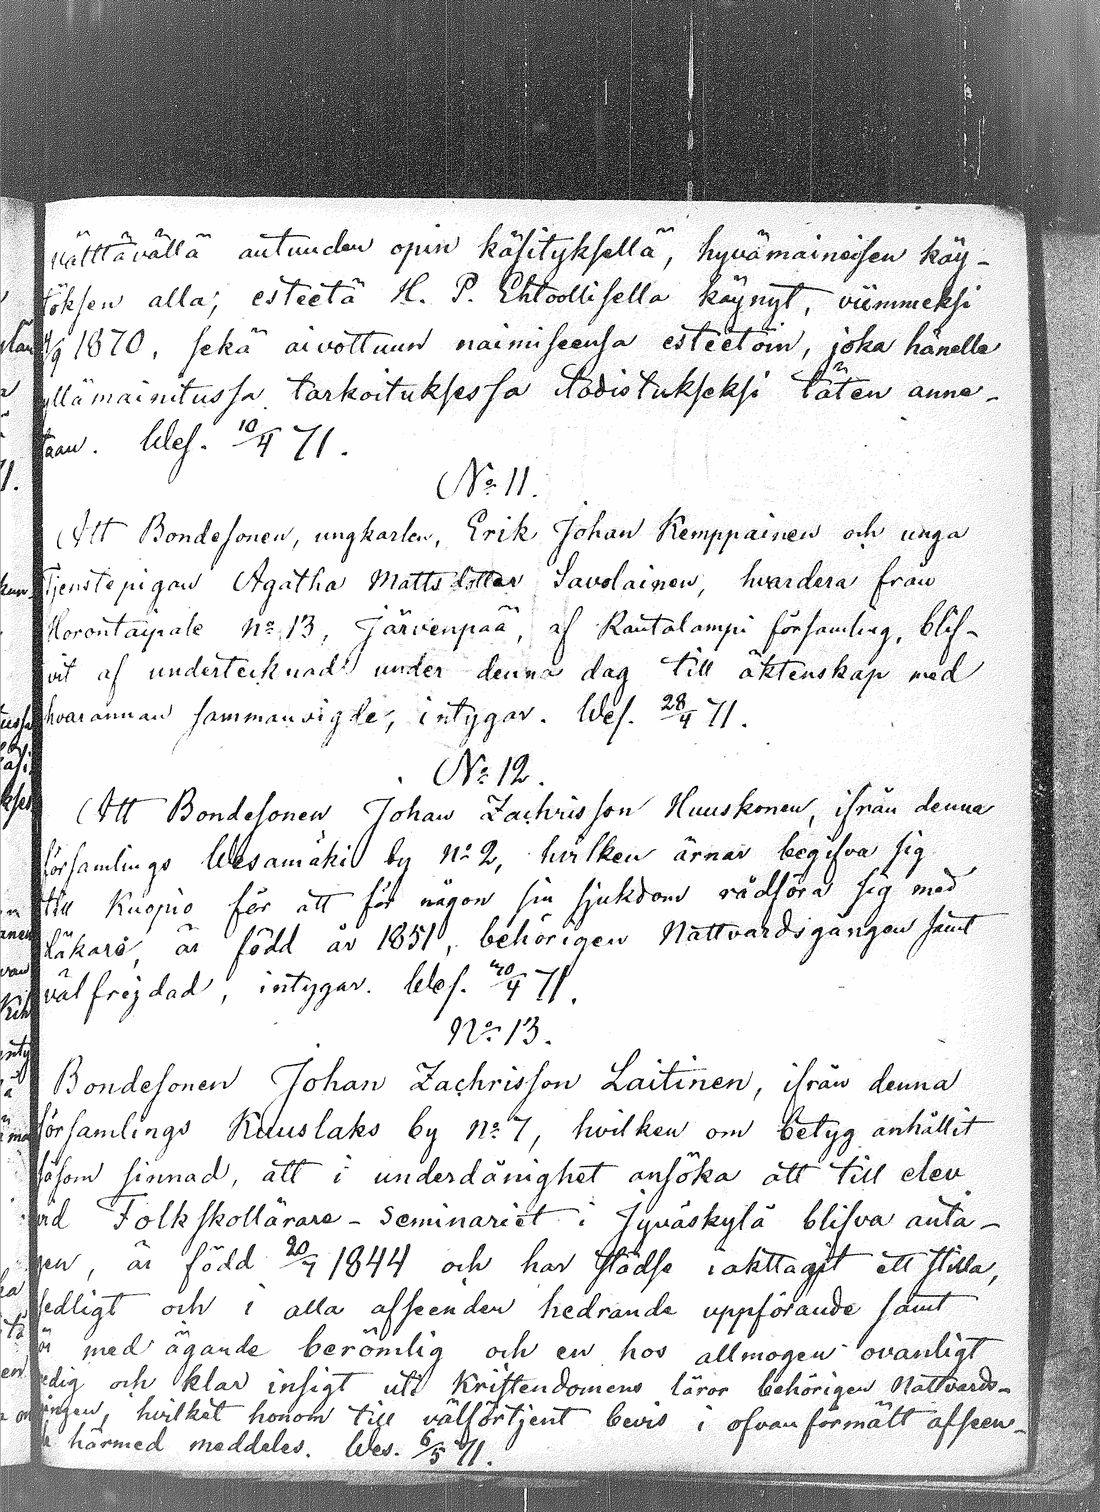 välttävällä autuuden opin käsityksellä, hyvämaineisen käy-
töksen alla, esteetä H. P. Ehtoollisella käynyt, viimmeksi
1870, sekä aivottuun naimiseensa esteetöin, joka hänelle
yllämainitussa tarkoituksessa todistukseksi täten anne-
taan. Wes. 10/4 71.
No 11.
Att Bondesonen, ungkarlen, Erik Johan Kemppainen och unga
Tjenstepigan Agatha Mattsdotter Savolainen, hvardera från
Horontaipale No 13, Järvenpää, af Rautalampi församling, blif-
vit af undertecknad under denna dag till äktenskap med
hvarannan sammanvigde, intygar. Wes. 28/4 71.
No 12.
Att Bondesonen Johan Zachrisson Huuskonen, ifrån denna
församlings Wesamäki by No 2, hvilken ärnar begifva sig
till Kuopio för att för någon sin sjukdom rådföra sig med
läkare, är född år 1851, behörigen Nattvardsgången samt
välfrejdad, intygar. Wes. 30/4 71.
No 13.
Bondesonen Johan Zachrisson Laitinen, ifrån denna
församlings Kuuslaks by No 7, hvilken om betyg anhållit
såsom sinnad, att i underdånighet ansöka att till elev
vid Folkskollärare-Seminariet i Jyväskylä blifva anta-
gen, är född 20/7 1844 och har städse iakttagit ett stilla,
sedligt och i alla afseenden hedrande uppförande samt
är med ägande berömlig och en hos allmogen ovanligt
redig och klar insigt uti Kristendomens läror behörigen Nattvards-
gången, hvilket honom till välförtjent bevis i ofvanförmält afseen-
härmed meddeles. Wes. 6/5 71.